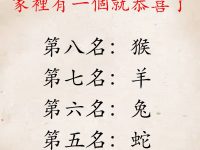 家裡有一個就恭喜了
第八名：猴
第七名：羊
第六名：兔
第五名：蛇